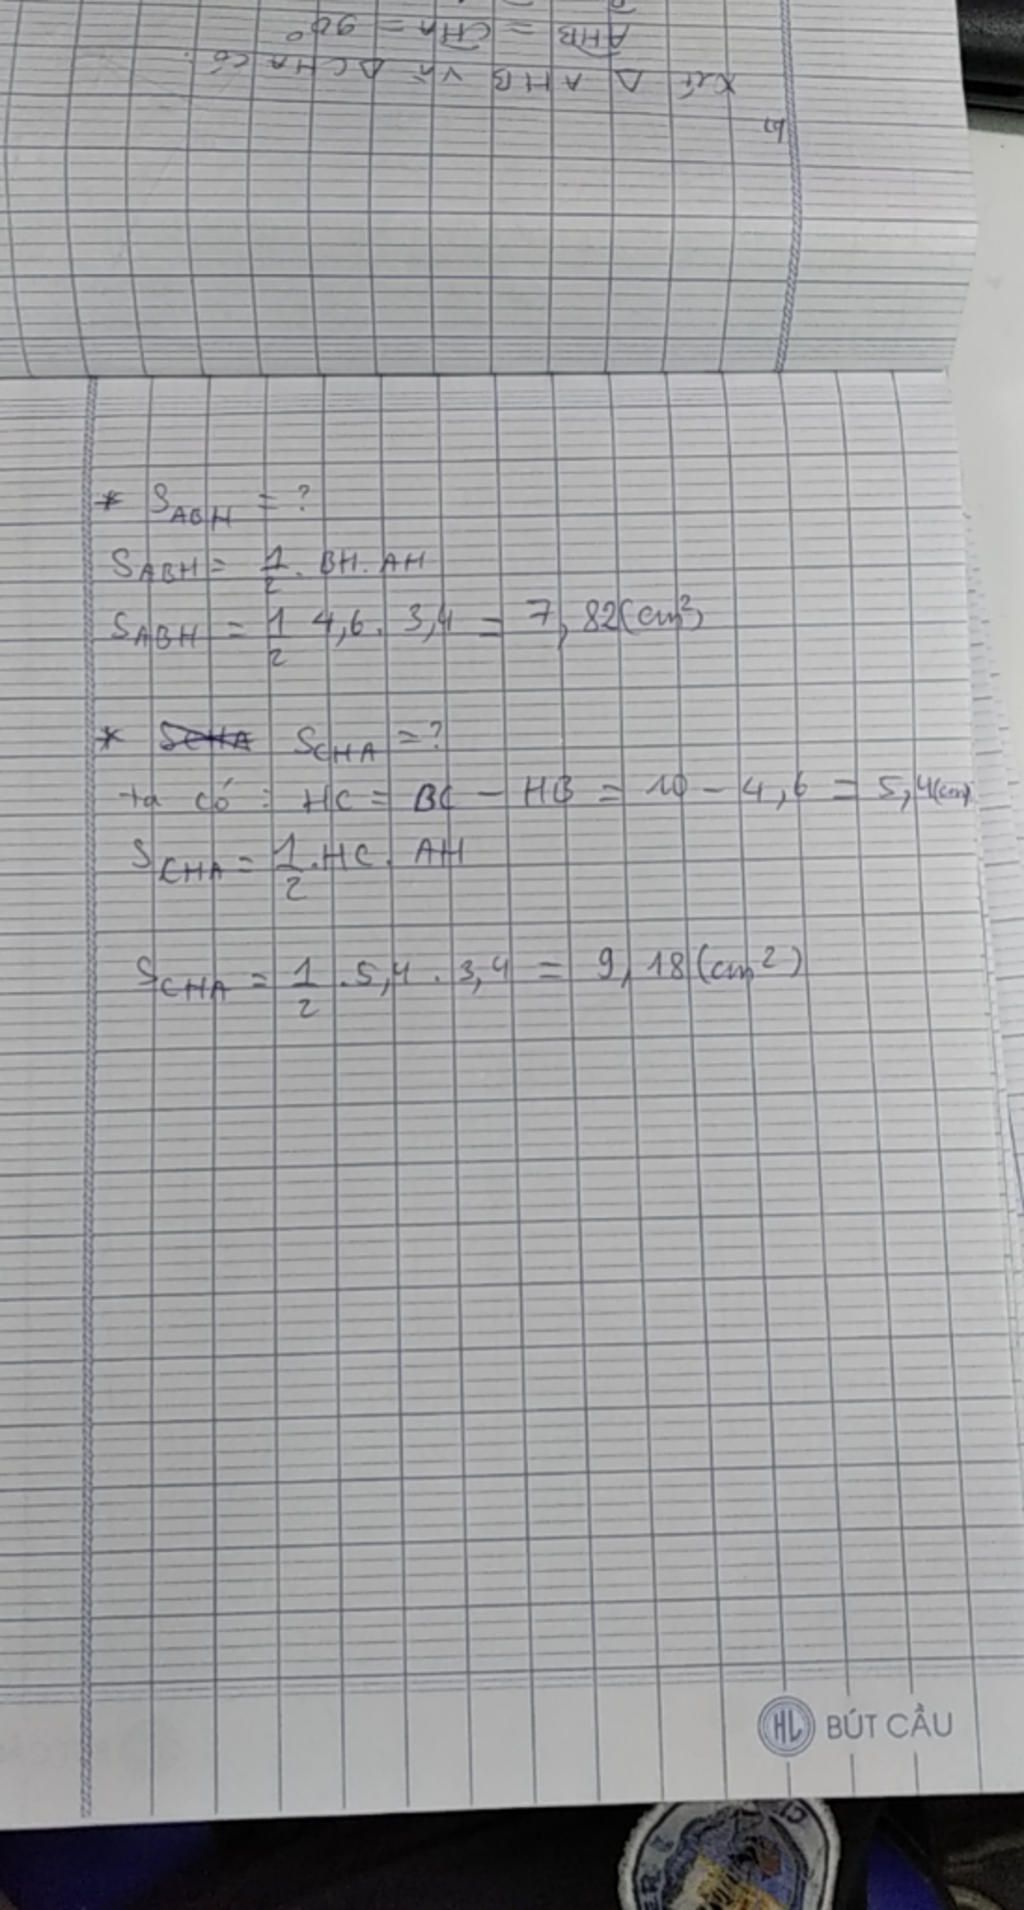 b)
Xét Δ AHB và Δ CHA có:
AHB = CHA = 90°
* S_ABH = ?
S_ABH = 1/2 . BH . AH
S_ABH = 1/2 4,6 . 3,4 = 7,82 (cm²)
* S_CHA S_CHA = ?
ta có : HC = BC - HB = 10 - 4,6 = 5,4 (cm)
S_CHA = 1/2 . HC . AH
S_CHA = 1/2 . 5,4 . 3,4 = 9,18 (cm²)
HL BÚT CẦU